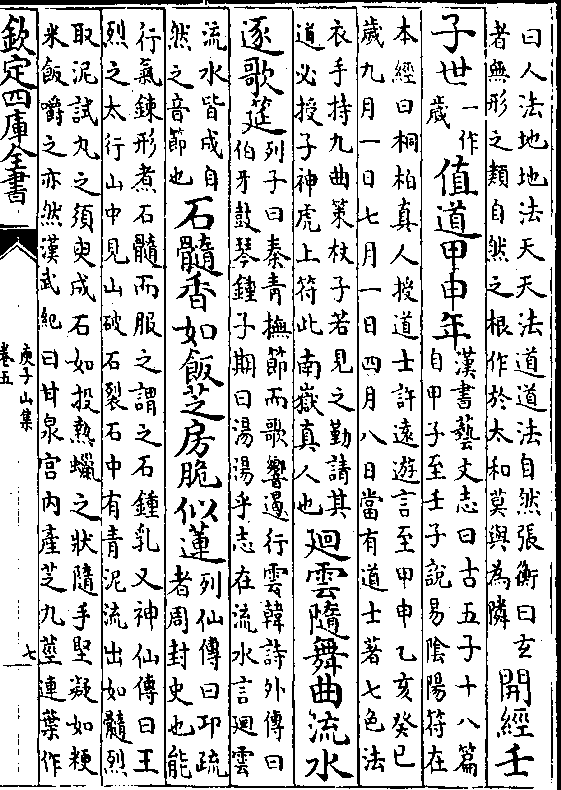 曰人法地地法天天法道道法自然張衡曰玄
者無形之類自然之根作於太和莫與為隣
開經壬
子世
一作
歲
值道甲申年
漢書藝文志曰古五子十八篇
自甲子至壬子說易陰陽符在
本經曰桐柏真人授道士許遠遊言至甲申乙亥癸巳
歲九月一日七月一日四月八日當有道士著七色法
衣手持九曲策杖子若見之勤請其
道必授子神虎上符此南嶽真人也
廻雲隨舞曲流水
逐歌筵
列子曰秦青撫節而歌響遏行雲韓詩外傳曰
伯牙鼓琴鍾子期曰湯湯乎志在流水言廻雲
流水皆成自
然之音節也
石髓香如飯芝房脆似蓮
列仙傳曰卭疏
者周封史也能
行氣鍊形煮石髓而服之謂之石鍾乳又神仙傳曰王
烈之太行山中見山破石裂石中有青泥流出如髓烈
取泥試丸之須臾成石如投熱蠟之狀隨手堅凝如粳
米飯嚼之亦然漢武紀曰甘泉宫内產芝九莖連葉作
欽定四庫全書
庾子山集
卷五
七